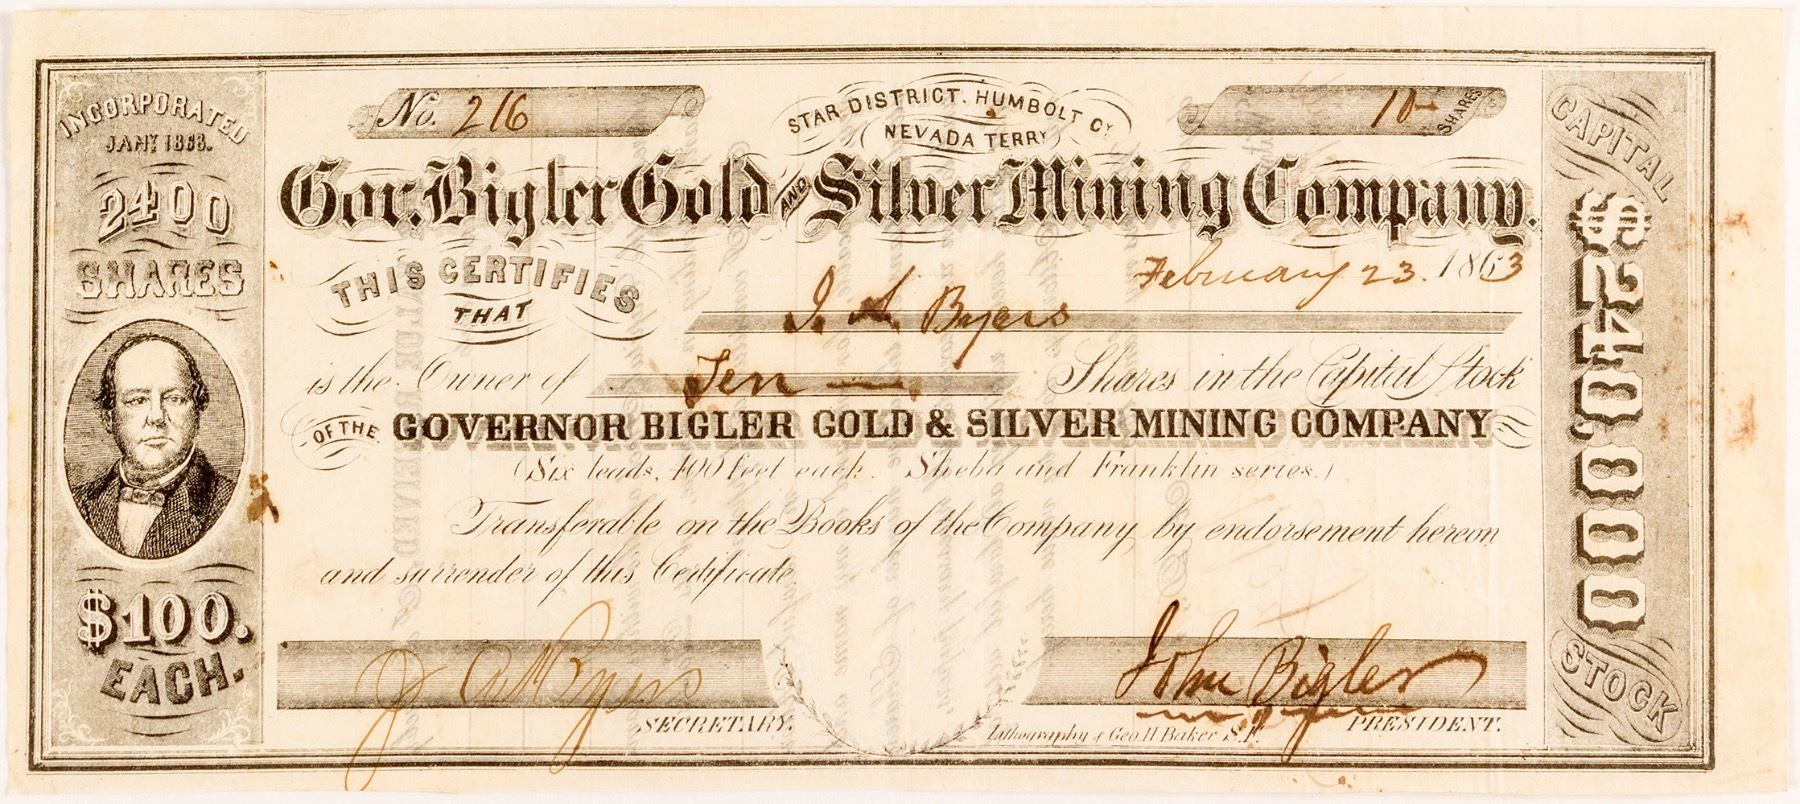 INCORPORATED
JANY. 1863.
2400
SHARES
$100.
EACH.
No. 216
STAR DISTRICT. HUMBOLT CY
NEVADA TERRY
10 SHARES
Gov. Bigler Gold AND Silver Mining Company.
February 23. 1863
THIS CERTIFIES
THAT
J. A. Byers
is the Owner of Ten Shares in the Capital Stock
OF THE GOVERNOR BIGLER GOLD & SILVER MINING COMPANY
(Six leads, 400 feet each. Sheba and Franklin series.)
Transferable on the Books of the Company, by endorsement hereon
and surrender of this Certificate.
J A Byers
SECRETARY.
John Bigler
PRESIDENT.
Lithography of Geo. H. Baker S.F.
CAPITAL
$240,000
STOCK